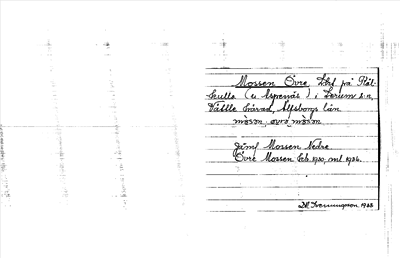 Mossen Övre, lht på Röl-
kulla (u Aspenäs) i Lerum sn,
Vättle härad, Älvsborgs län.
mòsən, øvrə mòsən
Jämf Mossen Nedre
Övre Mossen feb 1930, ml 1934.
1933